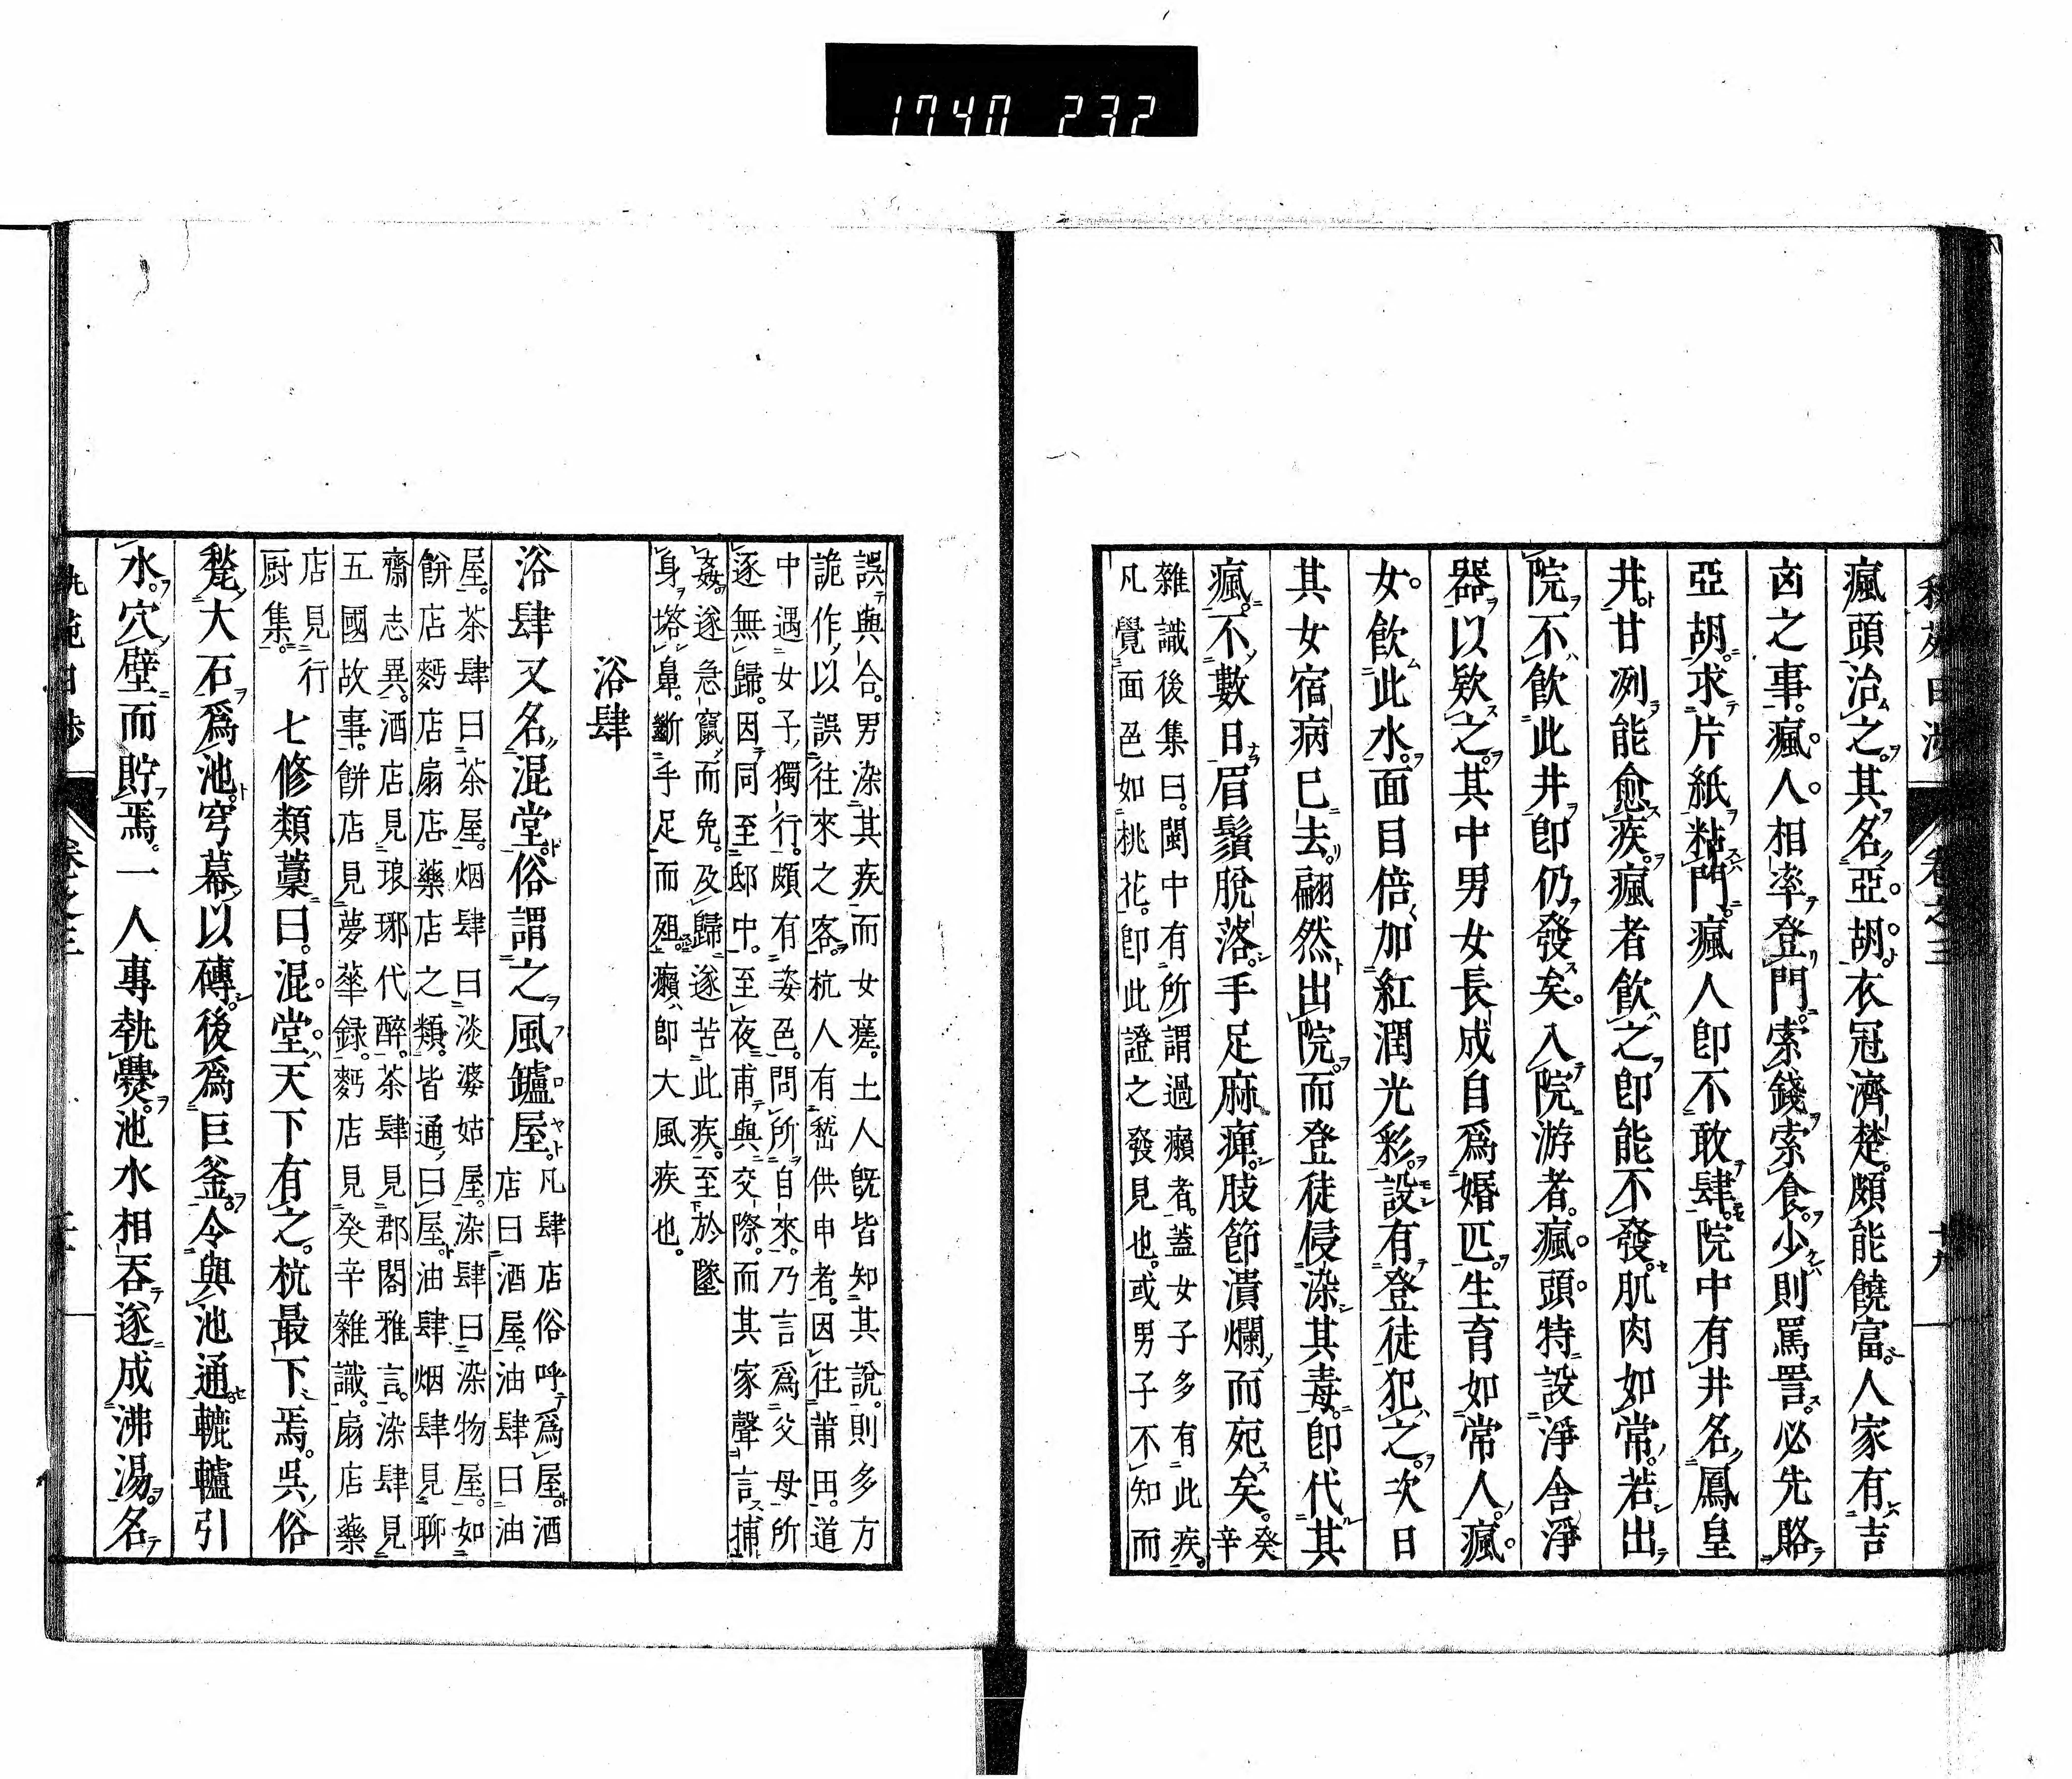 1740 232
瘋頭治之。其名亞胡。衣冠濟楚。頗能饒富。人家有吉
凶之事。瘋人相率登門。索錢索食。少則罵詈。必先賂
亞胡。求片紙粘諸門。瘋人卽不敢肆。院中有井名鳳皇
井。甘冽能愈疾。瘋者飮之卽能不發。肌肉如常。若出
院不飮此井卽仍發矣。入院游者。瘋頭特設淨舍淨
器以欵之。其中男女長成自爲婚匹。生育如常人。瘋
女飮此水。面目倍加紅潤光彩。設有登徒犯之。次日
其女宿病已去。翩然出院。而登徒侵染其毒。卽代其
瘋。不數日眉鬚脫落。手足麻痺。肢節潰爛而死矣。癸辛
雜識後集曰。閩中有所謂過癩者。蓋女子多有此疾。
凡覺面色如桃花。卽此證之發見也。或男子不知而
卷之三
十九
誤與合。男染其疾而女瘥。土人旣皆知其說。則多方
詭作以誤往來之客。杭人有嵇供申者。因往莆田。道
中遇女子獨行。頗有姿色。問所自來。乃言爲父母所
逐無歸。因同至邸中。至夜甫與交際。而其家聲言捕
姦。遂急竄而免。及歸遂苦此疾。至於墜
身塔鼻。斷手足而殂。癩卽大風疾也。
浴肆
浴肆又名混堂。俗謂之風鑪屋。凡肆店俗呼爲屋。酒
店曰酒屋。油肆曰油
屋。茶肆曰茶屋。烟肆曰淡婆姑屋。染肆曰染物屋。如
餅店麪店扇店藥店之類。皆通曰屋。油肆烟肆見聊
齋志異。酒店見琅琊代醉。茶肆見郡閣雅言。染肆見
五國故事。餅店見夢華錄。麪店見癸辛雜識。扇店藥
店見行
厨集。
七修類藁曰。混堂天下有之。杭最下焉。吳俗
甃大石爲池。穹幕以磚。後爲巨釜。令與池通。轆轤引
水。穴壁而貯焉。一人專執爨。池水相吞。遂成沸湯。名